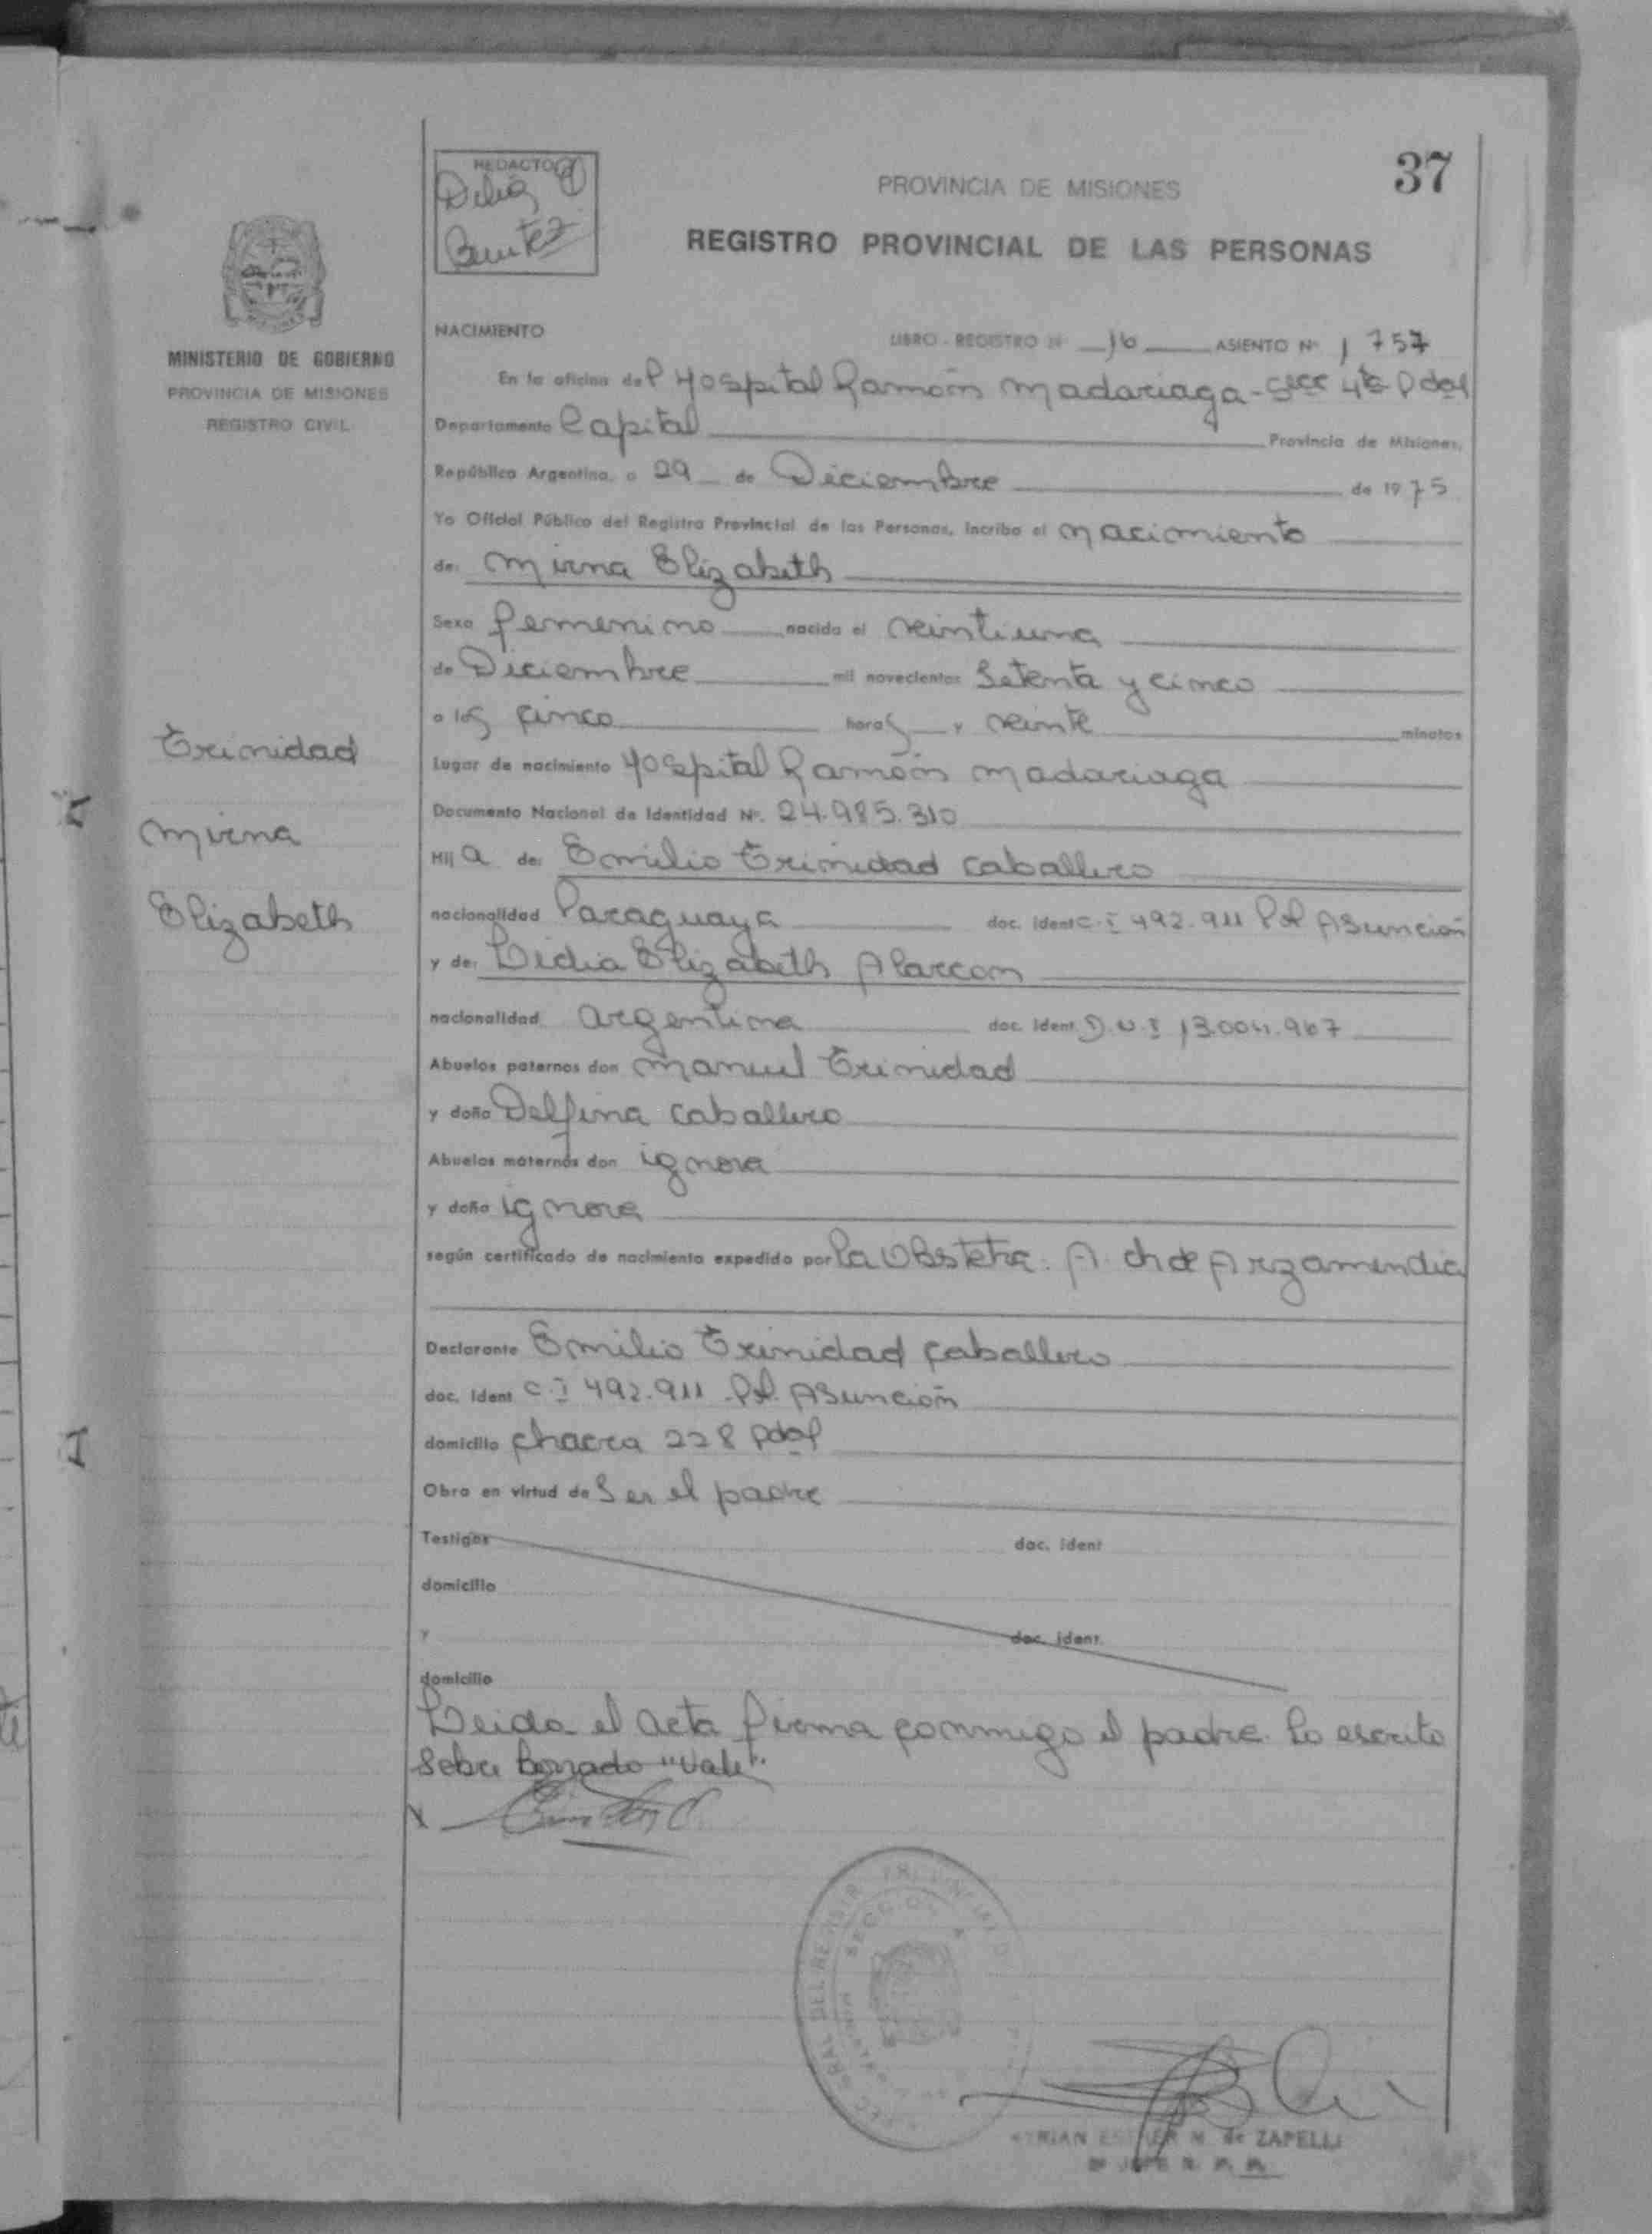 37
REDACTOR
Delia
Benitez
PROVINCIA DE MISIONES
REGISTRO PROVINCIAL DE LAS PERSONAS
MINISTERIO DE GOBIERNO
PROVINCIA DE MISIONES
REGISTRO CIVIL
NACIMIENTO LIBRO - REGISTRO Nº 16 ASIENTO Nº 1757
En la oficina del Hospital Ramón Madariaga - Secc 4ta Pdas
Departamento Capital Provincia de Misiones,
República Argentina, a 29 de Diciembre de 1975
Yo Oficial Público del Registro Provincial de las Personas, Incribo el nacimiento
de: Mirna Elizabeth
Sexo femenino nacida el veintiuno
de Diciembre mil novecientos Setenta y cinco
a las cinco horas y veinte minutos
Lugar de nacimiento Hospital Ramón Madariaga
Documento Nacional de Identidad Nº. 24.985.310
Hija de: Emilio Trinidad Caballero
nacionalidad Paraguaya doc. ident C.I 492.911 Pol Asunción
y de: Lidia Elizabeth Alarcon
nacionalidad argentina doc. ident D.N.I 13.004.967
Abuelos paternos don Manuel Trinidad
y doña Delfina Caballero
Abuelos maternos don ignora
y doña ignora
según certificado de nacimiento expedido por la Obstetra. A. Ch de Arzamendia
Declarante Emilio Trinidad Caballero
doc. Ident C.I 492.911 Pol. Asunción
domicilio Chacra 228 Pdas
Obra en virtud de Ser el padre
Testigos doc. ident
domicilio
y doc. ident.
domicilio
Leida el acta firma conmigo el padre. Lo escrito
sobre borrado "Vale".
Trinidad
Mirna
Elizabeth
SECCION
de ZAPELLI